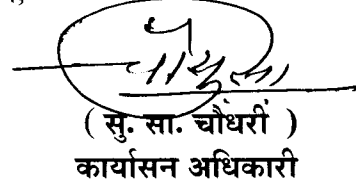 ( सु. सा. चौधरीं )
कार्यासन अधिकारी